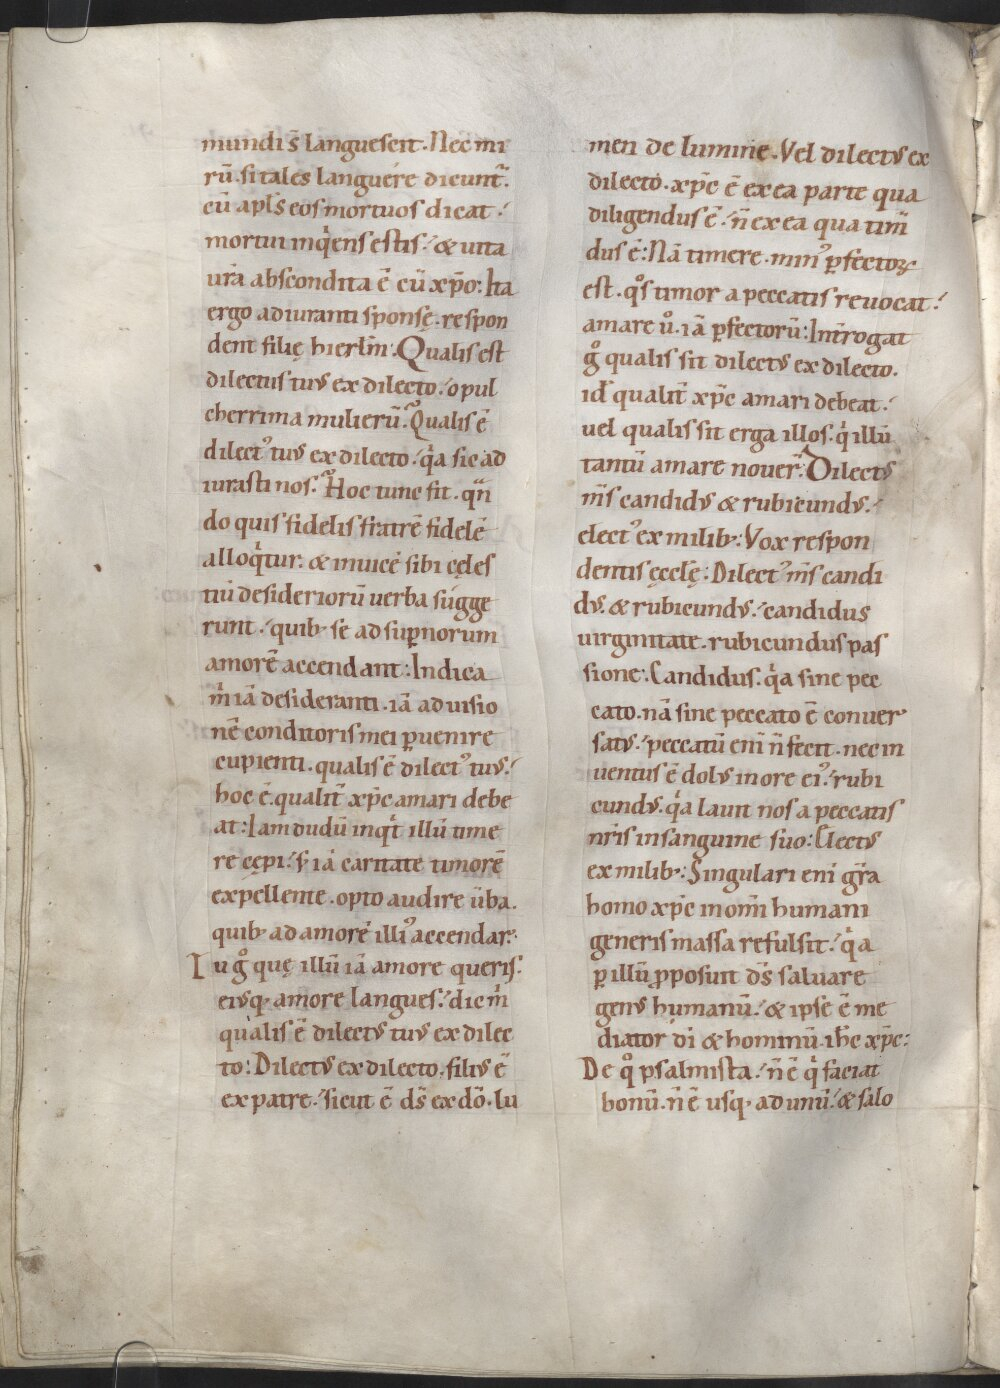 mundi s̄ languescit. Nec mi
rū. si tales languere dicunt᷑.
cū apl̄s eos mortuos dicat.
mortui inqͥens estis. & uita
ur̄a abscondita ē cū xp̄o. Ita
ergo adiuranti sponsę. respon
dent filię hierl̄m. Qualis est
dilectus tuꝰ ex dilecto. o pul
cherrima mulierū. Qualis ē
dilectꝰ tuꝰ ex dilecto. qͣa sic ad
iurasti nos. Hoc tunc fit. qn̄
do quis fidelis fratrē fidelē
alloqͥtur. & inuicē sibi cęles
tiū desideriorū uerba sugge
runt. quibꝫ se ad sup̄norum
amorē accendant: Indica
mͥ iā desideranti. iā ad uisio
nē conditoris mei ꝑuenire
cupienti. qualis ē dilectꝰ tuꝰ.
hoc ē. qualit̄ xp̄c amari debe
at: Iam dudū inqͥt illū time
re cępi. sꝫ iā caritate timorē
expellente. opto audire ūba.
quibꝫ ad amorē illiꝰ accendar.
Tu gͦ quę illū iā amore queris.
eiusqꝫ amore langues. dic mͥ
qualis ē dilectꝰ tuꝰ ex dilec
to: Dilectꝰ ex dilecto. filiꝰ ē
ex patre. sicut ē ds̄ ex dō. lu
men de lumine. Vel dilectꝰ ex
dilecto. xp̄c ē ex ea parte qua
diligendus ē. n̄ ex ea qua tim̄
dus ē: Nā timere. minꝰ ꝑfectoꝝ
est. qͦs timor a peccatis reuocat.
amare ūo. iā ꝑfectorū: Int̄rogat
gͦ qualis sit dilectꝰ ex dilecto.
id ÷ qualit̄ xp̄c amari debeat.
uel qualis sit erga illos. qͥ illū
tantū amare nouer̄. Dilectꝰ
m̄s candidꝰ & rubicundꝰ.
electꝰ ex milibꝫ: Vox respon
dentis ęcclę: Dilectꝰ m̄s candi
dꝰ. & rubicundꝰ. candidus
uirginitate. rubicundus pas
sione. Candidus. qͣa sine pec
cato. nā sine peccato ē conuer
satꝰ. peccatū eni n̄ fecit. nec in
uentus ē dolꝰ in ore eiꝰ. rubi
cundꝰ. qͣa lauit nos a peccatis
nr̄is in sanguine suo: Electꝰ
ex milibꝫ: Singulari eni gr̄a
homo xp̄c in om̄i humani
generis massa refulsit. qͣa
ꝑ illū ꝓposuit ds̄ saluare
genꝰ humanū. & ipse ē me
diator dī & hominū. ihc̄ xp̄c:
De qͦ psalmista. n̄ ē qͥ faciat
bonū. n̄ ē usqꝫ ad unū. & salo